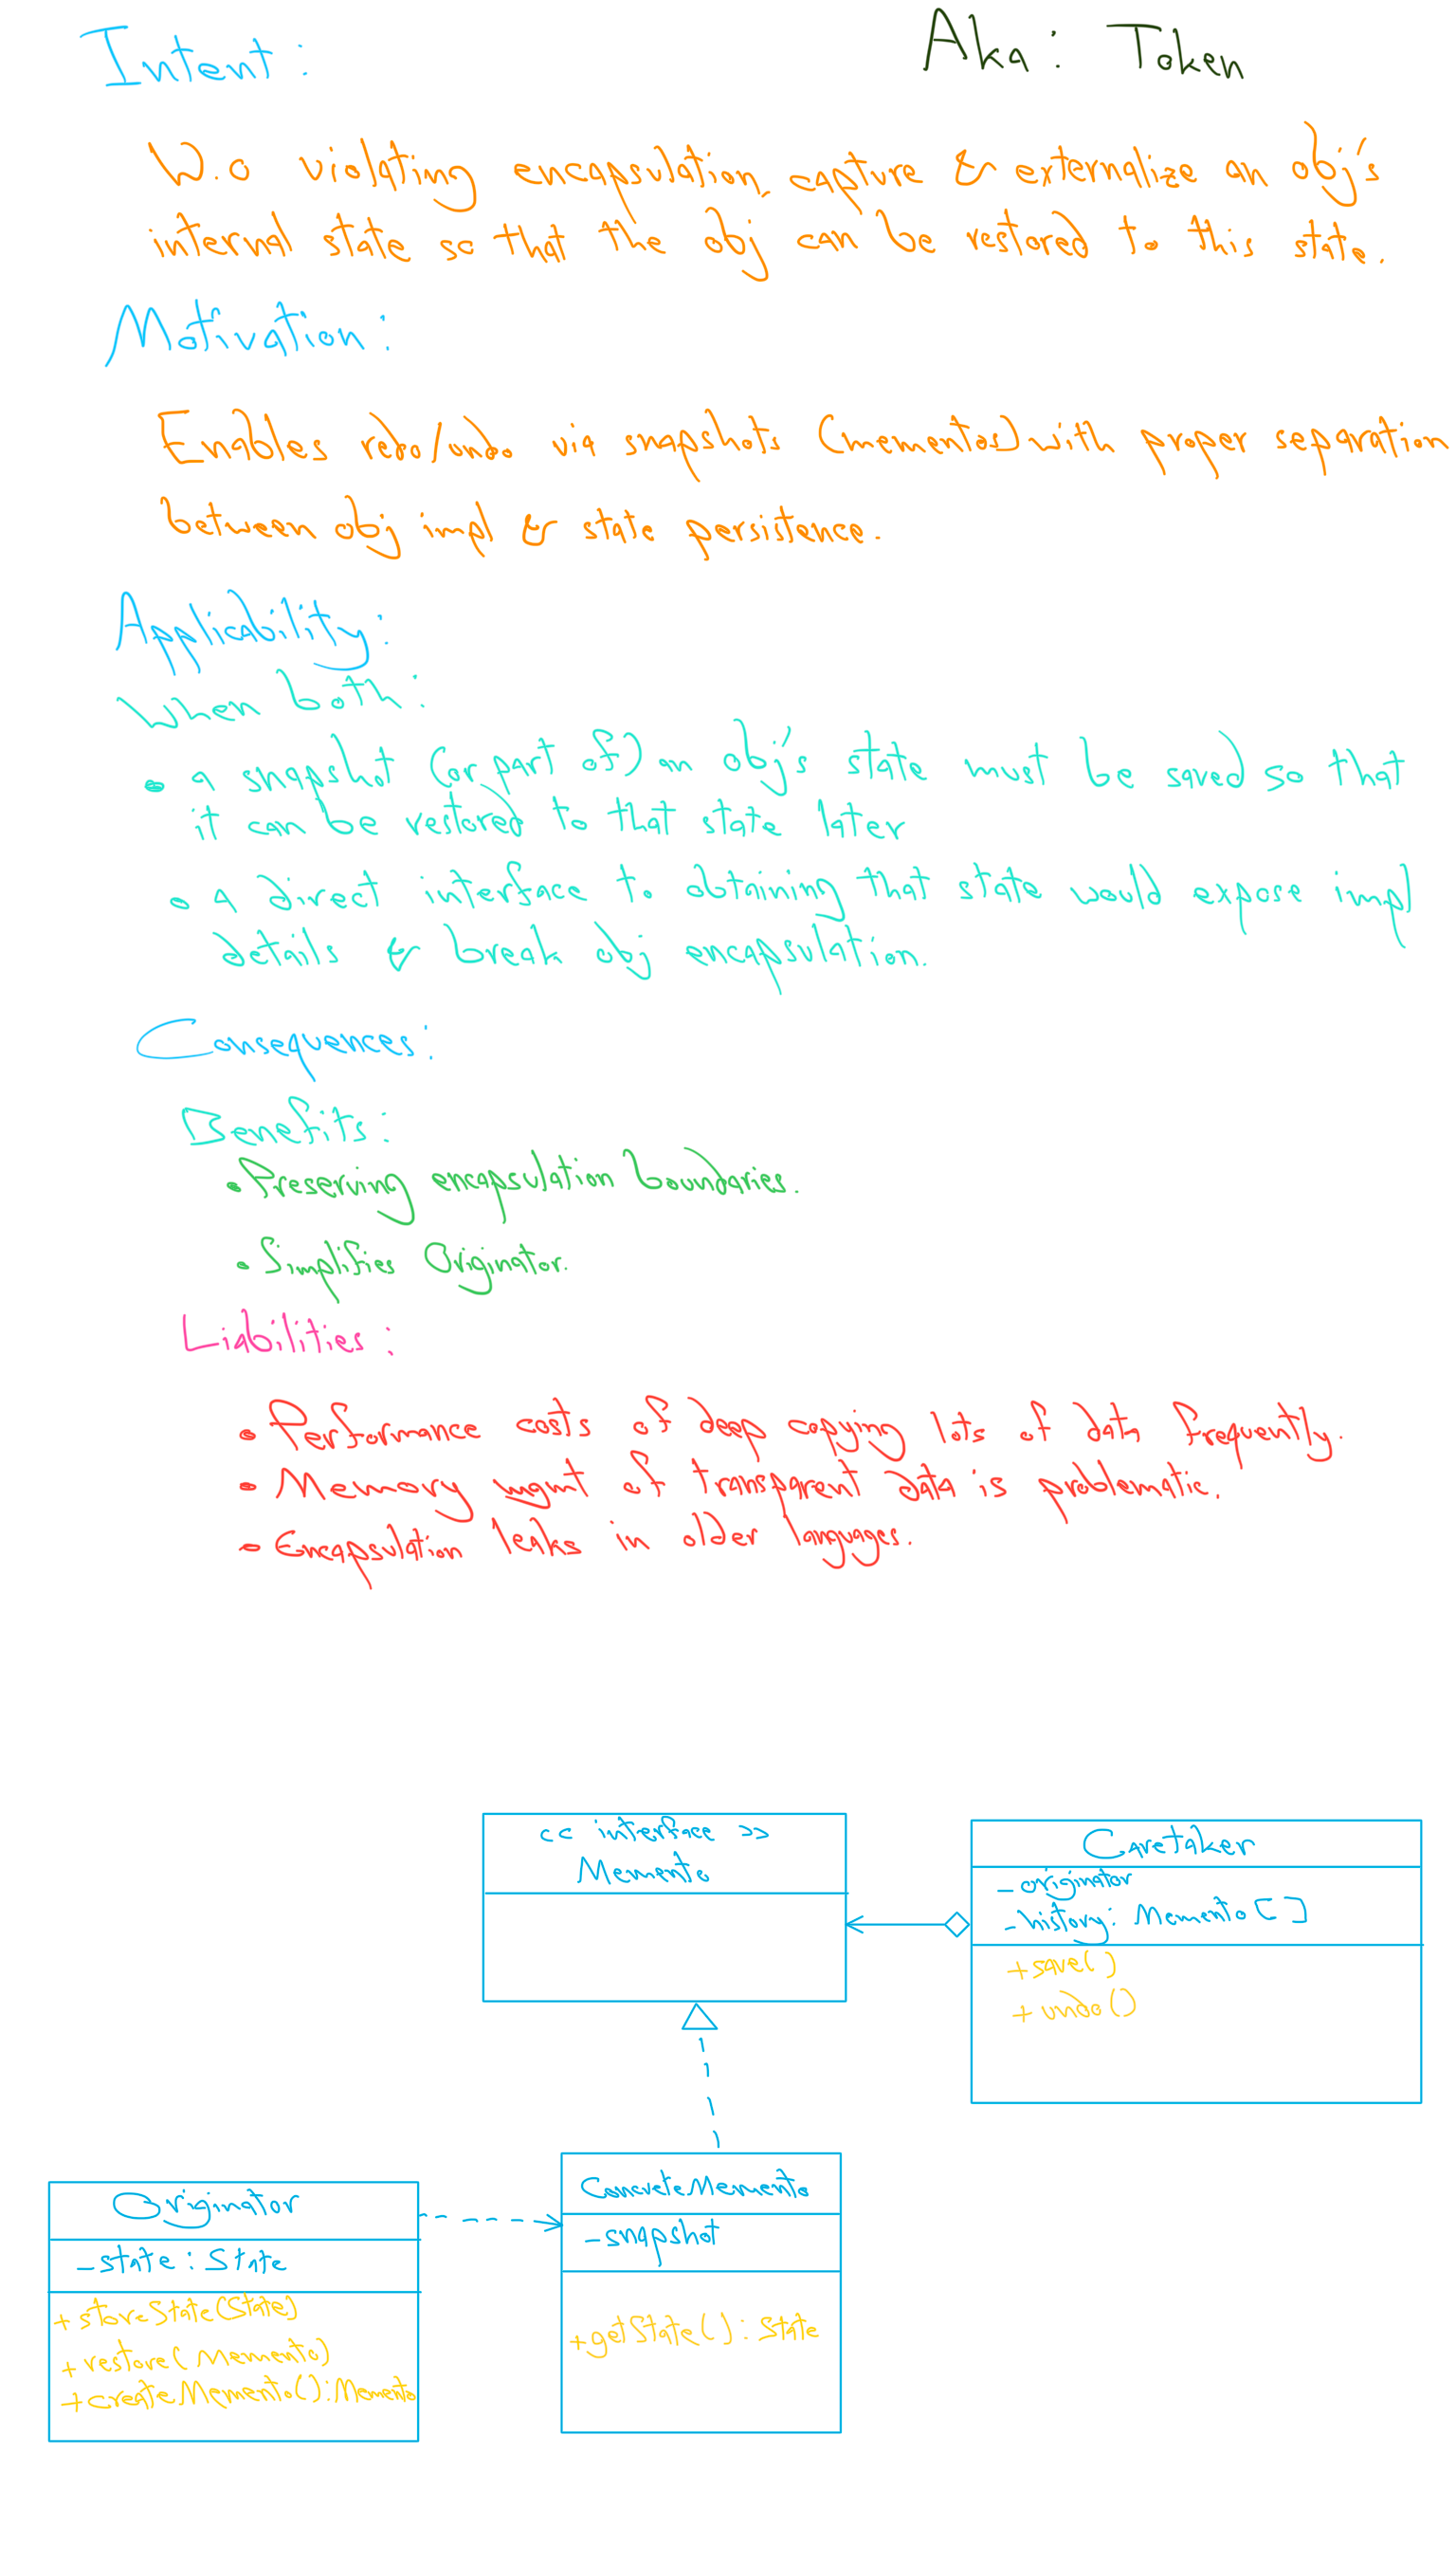 Intent:
Aka: Token
W.o violating encapsulation, capture & externalize an obj's
internal state so that the obj can be restored to this state.
Motivation:
Enables redo/undo via snapshots (mementos) with proper separation
between obj impl & state persistence.
Applicability:
When both:
• a snapshot (or part of) an obj's state must be saved so that
it can be restored to that state later
• a direct interface to obtaining that state would expose impl
details & break obj encapsulation.
Consequences:
Benefits:
• Preserving encapsulation boundaries.
• Simplifies Originator.
Liabilities:
• Performance costs of deep copying lots of data frequently.
• Memory mgmt of transparent data is problematic.
• Encapsulation leaks in older languages.
<< interface >>
Memento
Caretaker
- originator
- history: Memento []
+ save()
+ undo()
Originator
- state: State
+ storeState(State)
+ restore(Memento)
+ createMemento(): Memento
ConcreteMemento
- snapshot
+ getState(): State